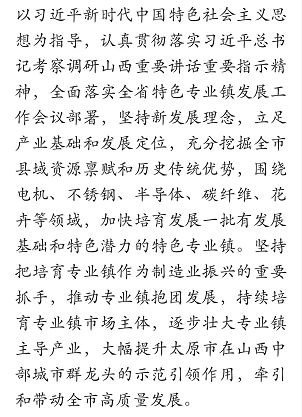 以习近平新时代中国特色社会主义思
想为指导，认真贯彻落实习近平总书
记考察调研山西重要讲话重要指示精
神，全面落实全省特色专业镇发展工
作会议部署，坚持新发展理念，立足
产业基础和发展定位，充分挖掘全市
县域资源禀赋和历史传统优势，围绕
电机、不锈钢、半导体、碳纤维、花
卉等领域，加快培育发展一批有发展
基础和特色潜力的特色专业镇。坚持
把培育专业镇作为制造业振兴的重要
抓手，推动专业镇抱团发展，持续培
育专业镇市场主体，逐步壮大专业镇
主导产业，大幅提升太原市在山西中
部城市群龙头的示范引领作用，牵引
和带动全市高质量发展。